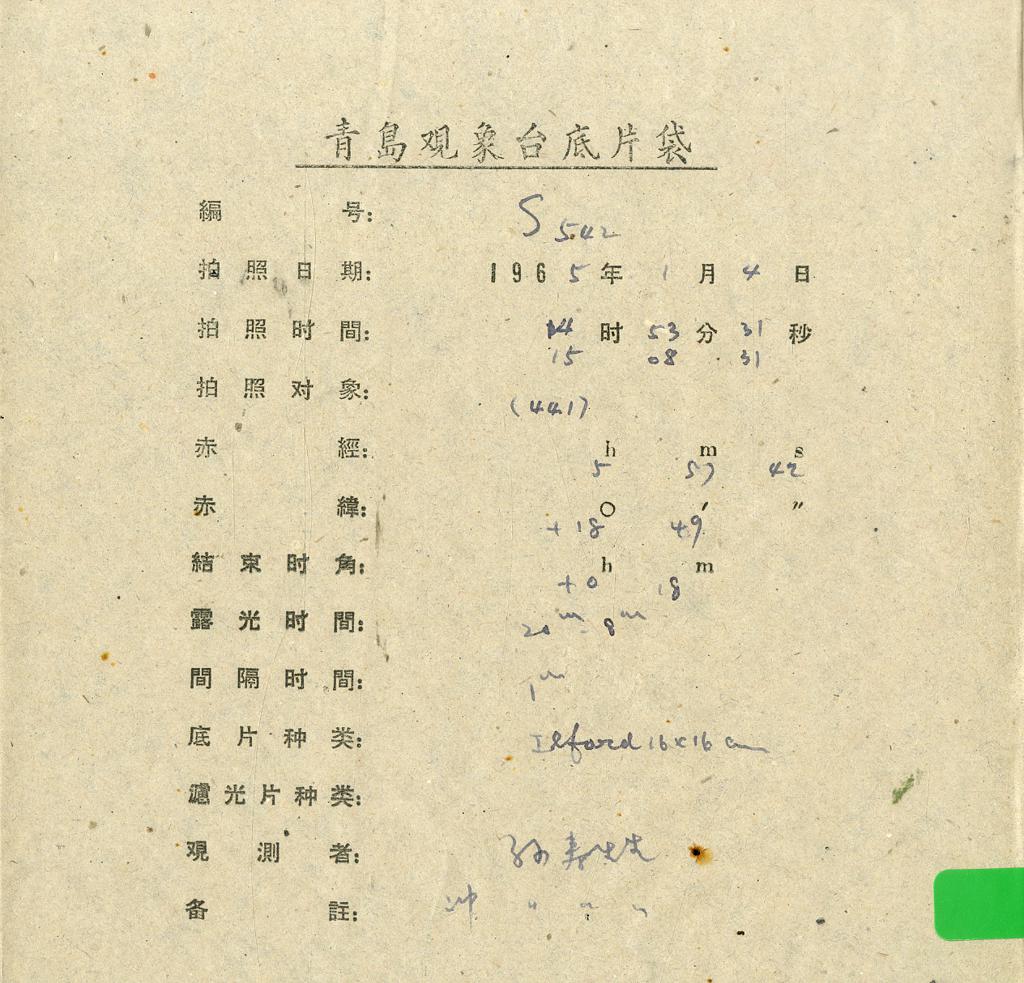 青島观象台底片袋
編号: S 542
拍照日期: 1965年1月4日
拍照时間: 14时53分31秒
15 08 31
拍照对象: (441)
赤經: h m s
5 57 42
赤緯: ○ ′ ″
+18 49
結束时角: h m
+0 18
露光时間: 20m - 8m
間隔时間: 1m
底片种类: Ilford 16×16 cm
濾光片种类:
观測者: 孙寿
备註: 冲 〃 〃 〃